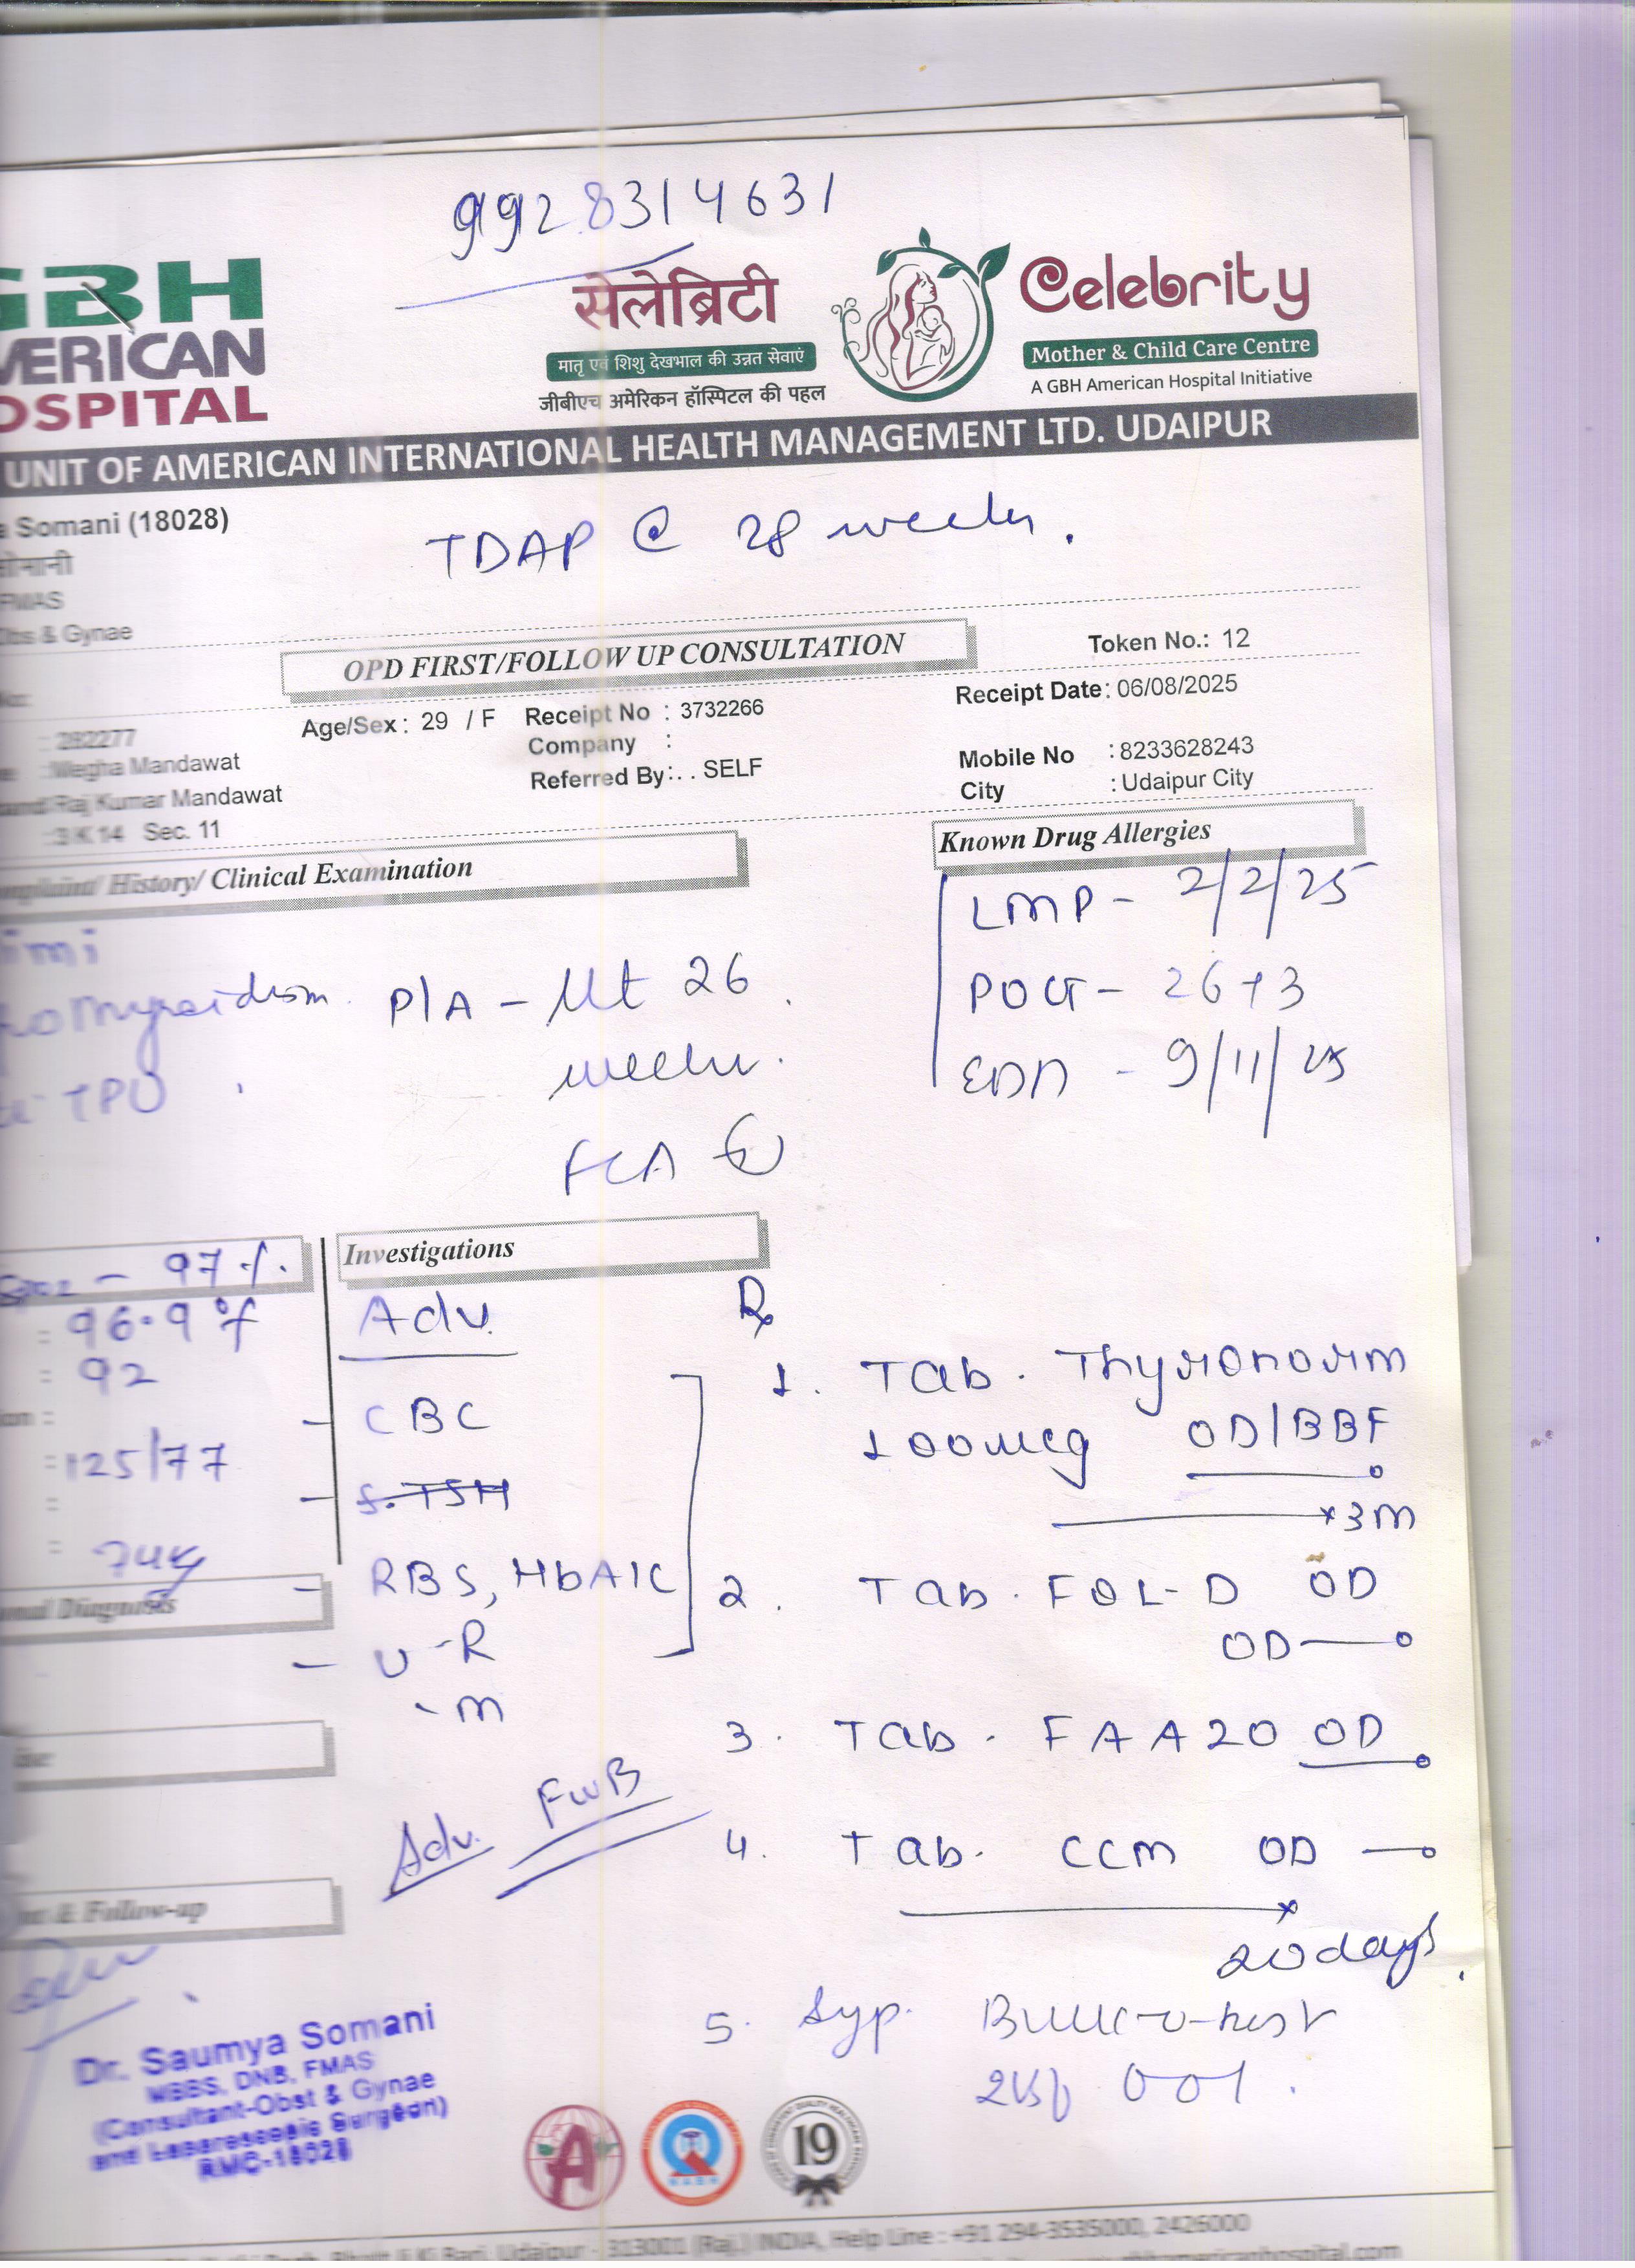 9928314631
GBH
AMERICAN
HOSPITAL
सेलेब्रिटी
मातृ एवं शिशु देखभाल की उन्नत सेवाएं
जीबीएच अमेरिकन हॉस्पिटल की पहल
Celebrity
Mother & Child Care Centre
A GBH American Hospital Initiative
UNIT OF AMERICAN INTERNATIONAL HEALTH MANAGEMENT LTD. UDAIPUR
a Somani (18028)
सोमानी
FMAS
Obs & Gynae
TDAP @ 28 weeks.
OPD FIRST/FOLLOW UP CONSULTATION
Token No.: 12
Age/Sex : 29 / F Receipt No : 3732266 Receipt Date: 06/08/2025
: 282277
Company :
: Megha Mandawat
Referred By:. . SELF
Mobile No : 8233628243
Raj Kumar Mandawat
City : Udaipur City
: 3 K 14 Sec. 11
History/ Clinical Examination
Known Drug Allergies
LMP - 2/2/25
POG - 26+3
EDD - 9/11/25
P/A - Ut 26
weeks.
- 97 %.
Investigations
= 96.9°f
= 92
= 125/77
Adv.
- CBC
- S.TSH
- RBS, HbA1C
- U-R
- m
Adv. FWB
Rx
1. Tab. Thyronorm
100mcg OD/BBF
x3m
2. Tab. FOL-D OD
OD
3. Tab. FAA20 OD
4. Tab. CCM OD
20 days.
5. Syp.
001.
& Follow-up
Dr. Saumya Somani
MBBS, DNB, FMAS
(Consultant-Obst & Gynae
and Laparoscopic Surgeon)
RMC-18028
A
19
Udaipur - 313001 (Raj.) INDIA, Help Line : +91 294-3535000, 2426000